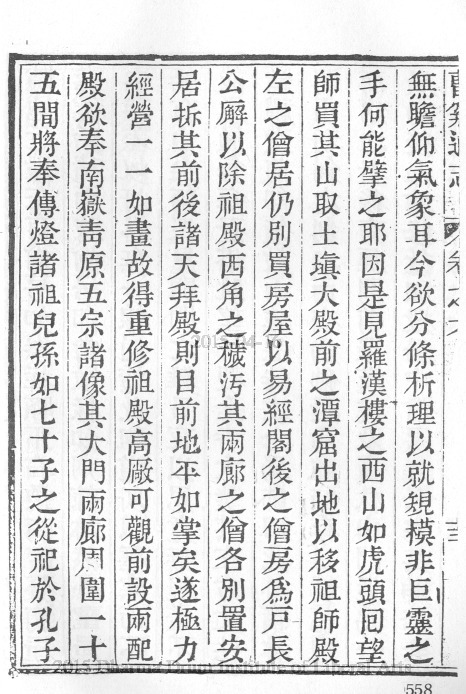 曹谿通志 卷之六
無瞻仰氣象耳今欲分條析理以就規模非巨靈之
手何能擘之耶因是見羅漢樓之西山如虎頭囘望
師買其山取土塡大殿前之潭窟出地以移祖師殿
左之僧居仍別買房屋以易經閣後之僧房爲戸長
公廨以除祖殿西角之穢汚其兩廊之僧各別置安
居拆其前後諸天拜殿則目前地平如掌矣遂極力
經營一一如畫故得重修祖殿高厰可觀前設兩配
殿欲奉南嶽靑原五宗諸像其大門兩廊周圍一十
五間將奉傳燈諸祖兒孫如七十子之從祀於孔子
558